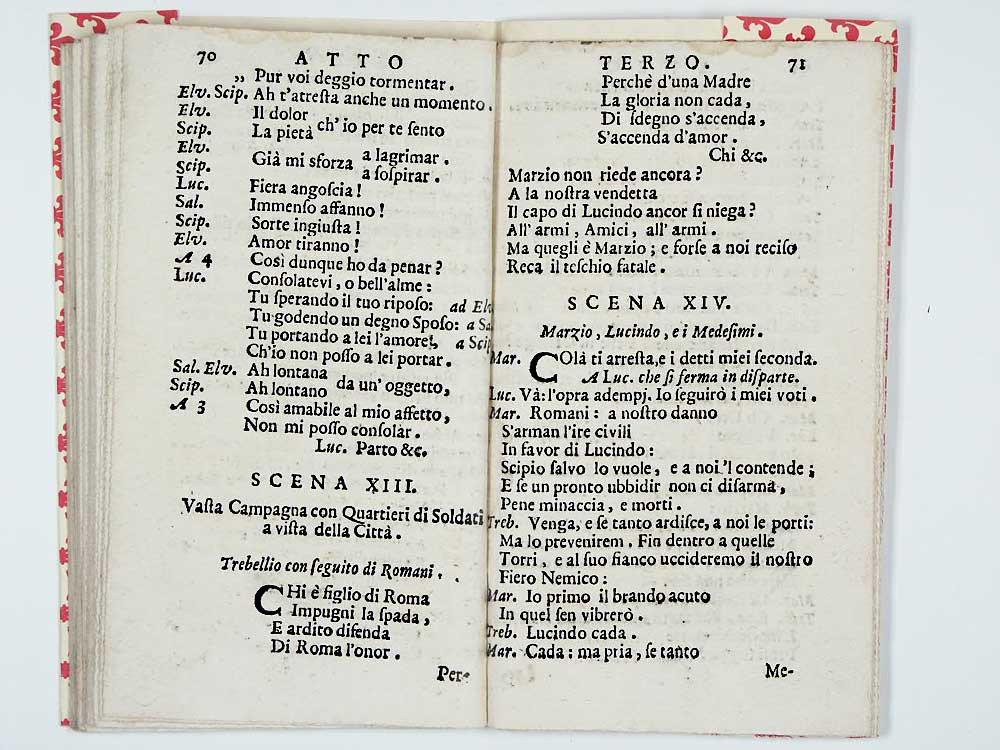 70 ATTO
„ Pur voi deggio tormentar.
Elv. Scip. Ah t'arresta anche un momento.
Elv. Il dolor
Scip. La pietà ch'io per te sento
Elv. Già mi sforza a lagrimar.
Scip. a sospirar.
Luc. Fiera angoscia!
Sal. Immenso affanno!
Scip. Sorte ingiusta!
Elv. Amor tiranno!
A 4 Così dunque ho da penar?
Luc. Consolatevi, o bell'alme:
Tu sperando il tuo riposo: ad Elv
Tu godendo un degno Sposo: a Sal
Tu portando a lei l'amore, a Scip
Ch'io non posso a lei portar.
Sal. Elv. Ah lontana
Scip. Ah lontano da un'oggetto,
A 3 Così amabile al mio affetto,
Non mi posso consolar.
Luc. Parto &c.
SCENA XIII.
Vasta Campagna con Quartieri di Soldati
a vista della Città.
Trebellio con seguito di Romani.
CHi è figlio di Roma
Impugni la spada,
E ardito difenda
Di Roma l'onor.
Per-
TERZO. 71
Perchè d'una Madre
La gloria non cada,
Di sdegno s'accenda,
S'accenda d'amor.
Chi &c.
Marzio non riede ancora?
A la nostra vendetta
Il capo di Lucindo ancor si niega?
All'armi, Amici, all'armi.
Ma quegli è Marzio; e forse a noi reciso
Reca il teschio fatale.
SCENA XIV.
Marzio, Lucindo, e i Medesimi.
Mar. COlà ti arresta, e i detti miei seconda.
A Luc. che si ferma in disparte.
Luc. Và: l'opra adempj. Io seguirò i miei voti.
Mar. Romani: a nostro danno
S'arman l'ire civili
In favor di Lucindo:
Scipio salvo lo vuole, e a noi 'l contende;
E se un pronto ubbidir non ci disarma,
Pene minaccia, e morti.
Treb. Venga, e se tanto ardisce, a noi le porti:
Ma lo prevenirem. Fin dentro a quelle
Torri, e al suo fianco uccideremo il nostro
Fiero Nemico:
Mar. Io primo il brando acuto
In quel sen vibrerò.
Treb. Lucindo cada.
Mar. Cada: ma pria, se tanto
Me-